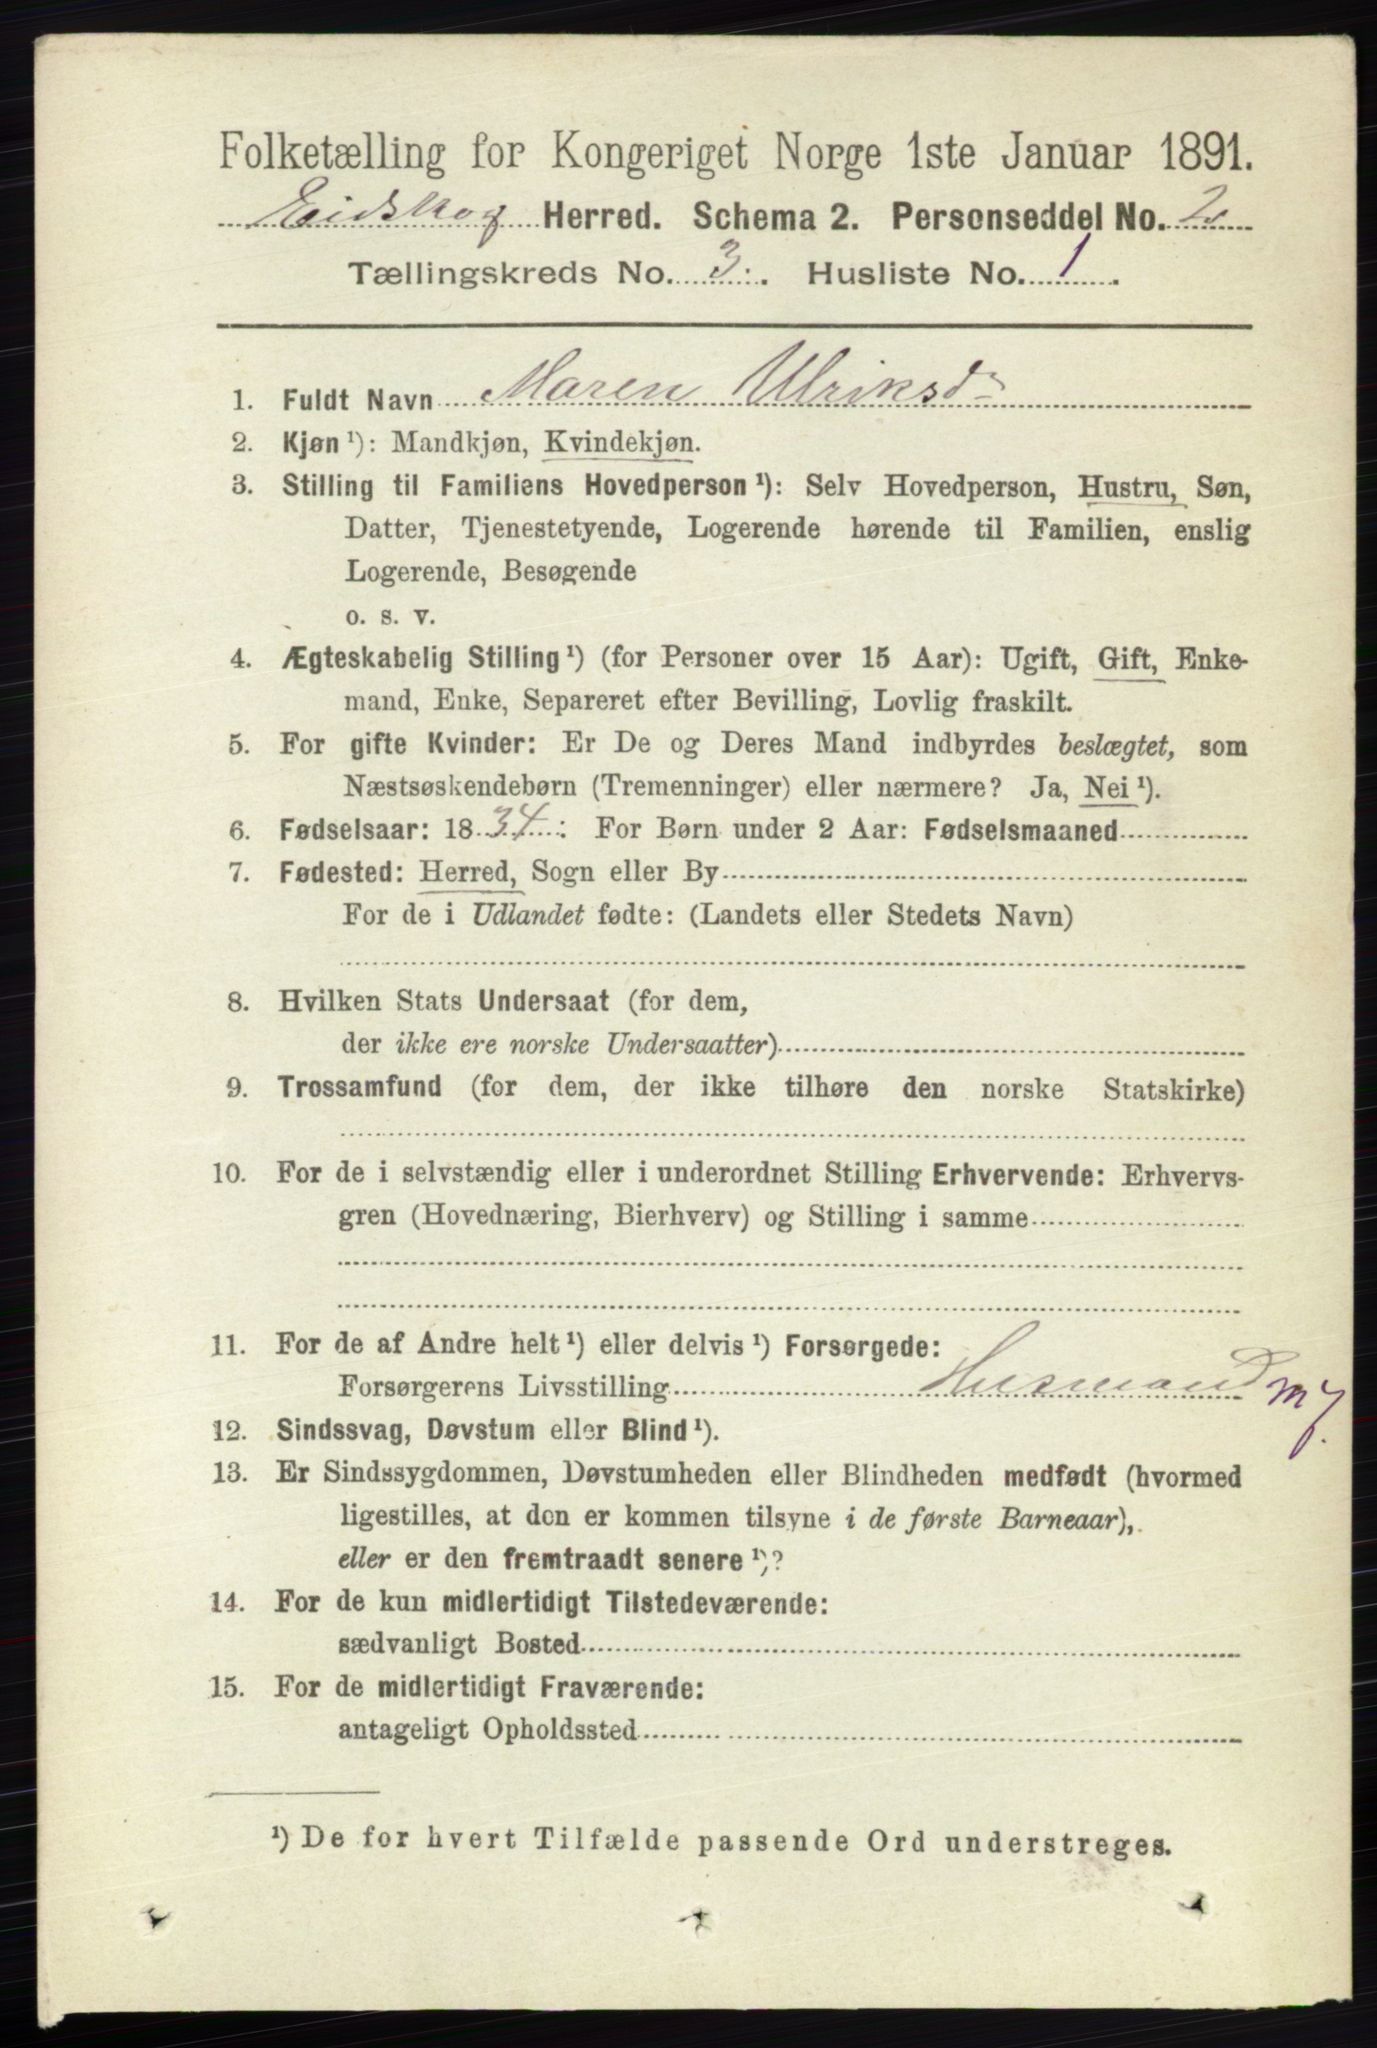 Folketælling for Kongeriget Norge 1ste Januar 1891.
Eidskog Herred. Schema 2. Personseddel No. 2
Tællingskreds No. 3. Husliste No. 1.
1. Fuldt Navn Maren Ulriksdr
2. Kjøn ¹): Mandkjøn, Kvindekjøn.
3. Stilling til Familiens Hovedperson ¹): Selv Hovedperson, Hustru, Søn,
Datter, Tjenestetyende, Logerende hørende til Familien, enslig
Logerende, Besøgende
o. s. v.
4. Ægteskabelig Stilling ¹) (for Personer over 15 Aar): Ugift, Gift, Enke-
mand, Enke, Separeret efter Bevilling, Lovlig fraskilt.
5. For gifte Kvinder: Er De og Deres Mand indbyrdes beslægtet, som
Næstsøskendebørn (Tremenninger) eller nærmere? Ja, Nei ¹).
6. Fødselsaar: 1834: For Børn under 2 Aar: Fødselsmaaned
7. Fødested: Herred, Sogn eller By
For de i Udlandet fødte: (Landets eller Stedets Navn)
8. Hvilken Stats Undersaat (for dem,
der ikke ere norske Undersaatter)
9. Trossamfund (for dem, der ikke tilhøre den norske Statskirke)
10. For de i selvstændig eller i underordnet Stilling Erhvervende: Erhvervs-
gren (Hovednæring, Bierhverv) og Stilling i samme
11. For de af Andre helt ¹) eller delvis ¹) Forsørgede:
Forsørgerens Livsstilling Husmand m j.
12. Sindssvag, Døvstum eller Blind ¹).
13. Er Sindssygdommen, Døvstumheden eller Blindheden medfødt (hvormed
ligestilles, at den er kommen tilsyne i de første Barneaar),
eller er den fremtraadt senere ¹)?
14. For de kun midlertidigt Tilstedeværende:
sædvanligt Bosted
15. For de midlertidigt Fraværende:
antageligt Opholdssted
¹) De for hvert Tilfælde passende Ord understreges.